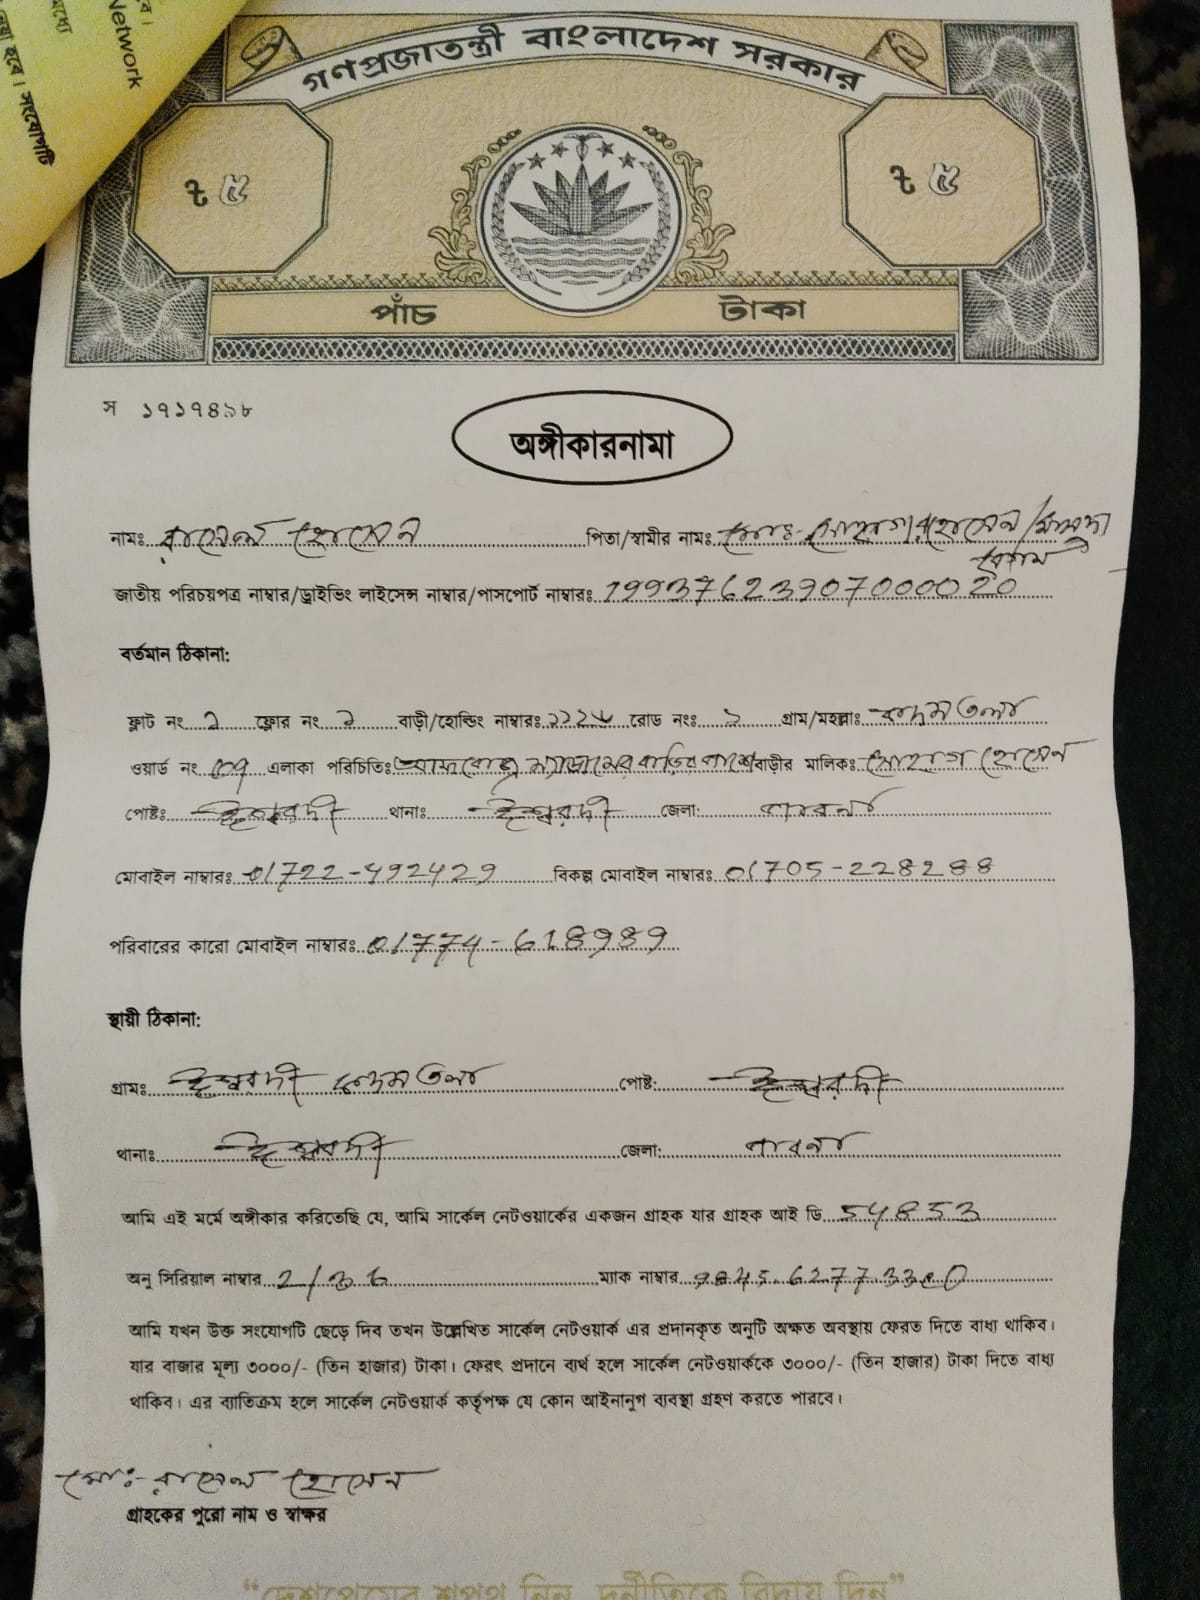 বে।
মধ্যে
Network
নেয়া হবে। সংযোগটি
গণপ্রজাতন্ত্রী বাংলাদেশ সরকার
৳ ৫ ৳ ৫
পাঁচ টাকা
স ১৭১৭৪৯৮
অঙ্গীকারনামা
নামঃ রাসেল হোসেন পিতা/স্বামীর নামঃ মোঃ- সোহাগ হোসেন / মাসুদা
বেগম
জাতীয় পরিচয়পত্র নাম্বার/ড্রাইভিং লাইসেন্স নাম্বার/পাসপোর্ট নাম্বারঃ 19937623907000020
বর্তমান ঠিকানা:
ফ্লাট নং ১ ফ্লোর নং ১ বাড়ী/হোল্ডিং নাম্বারঃ রোড নংঃ ১ গ্রাম/মহল্লাঃ কদমতলা
ওয়ার্ড নং ০৭ এলাকা পরিচিতিঃ ম্যাডামের বাড়ির পাশে বাড়ীর মালিকঃ সোহাগ হোসেন
পোষ্টঃ ঈশ্বরদী থানাঃ ঈশ্বরদী জেলা: পাবনা
মোবাইল নাম্বারঃ 01722-492429 বিকল্প মোবাইল নাম্বারঃ 01705-228288
পরিবারের কারো মোবাইল নাম্বারঃ 01774-618989
স্থায়ী ঠিকানা:
গ্রামঃ ঈশ্বরদী কদমতলা পোষ্ট: ঈশ্বরদী
থানাঃ ঈশ্বরদী জেলা: পাবনা
আমি এই মর্মে অঙ্গীকার করিতেছি যে, আমি সার্কেল নেটওয়ার্কের একজন গ্রাহক যার গ্রাহক আই ডি 54853
অনু সিরিয়াল নাম্বার 2/36 ম্যাক নাম্বার
আমি যখন উক্ত সংযোগটি ছেড়ে দিব তখন উল্লেখিত সার্কেল নেটওয়ার্ক এর প্রদানকৃত অনুটি অক্ষত অবস্থায় ফেরত দিতে বাধ্য থাকিব।
যার বাজার মূল্য ৩০০০/- (তিন হাজার) টাকা। ফেরৎ প্রদানে ব্যর্থ হলে সার্কেল নেটওয়ার্ককে ৩০০০/- (তিন হাজার) টাকা দিতে বাধ্য
থাকিব। এর ব্যাতিক্রম হলে সার্কেল নেটওয়ার্ক কর্তৃপক্ষ যে কোন আইনানুগ ব্যবস্থা গ্রহণ করতে পারবে।
মোঃ- রাসেল হোসেন
গ্রাহকের পুরো নাম ও স্বাক্ষর
“দেশপ্রেমের শপথ নিন, দুর্নীতিকে বিদায় দিন”